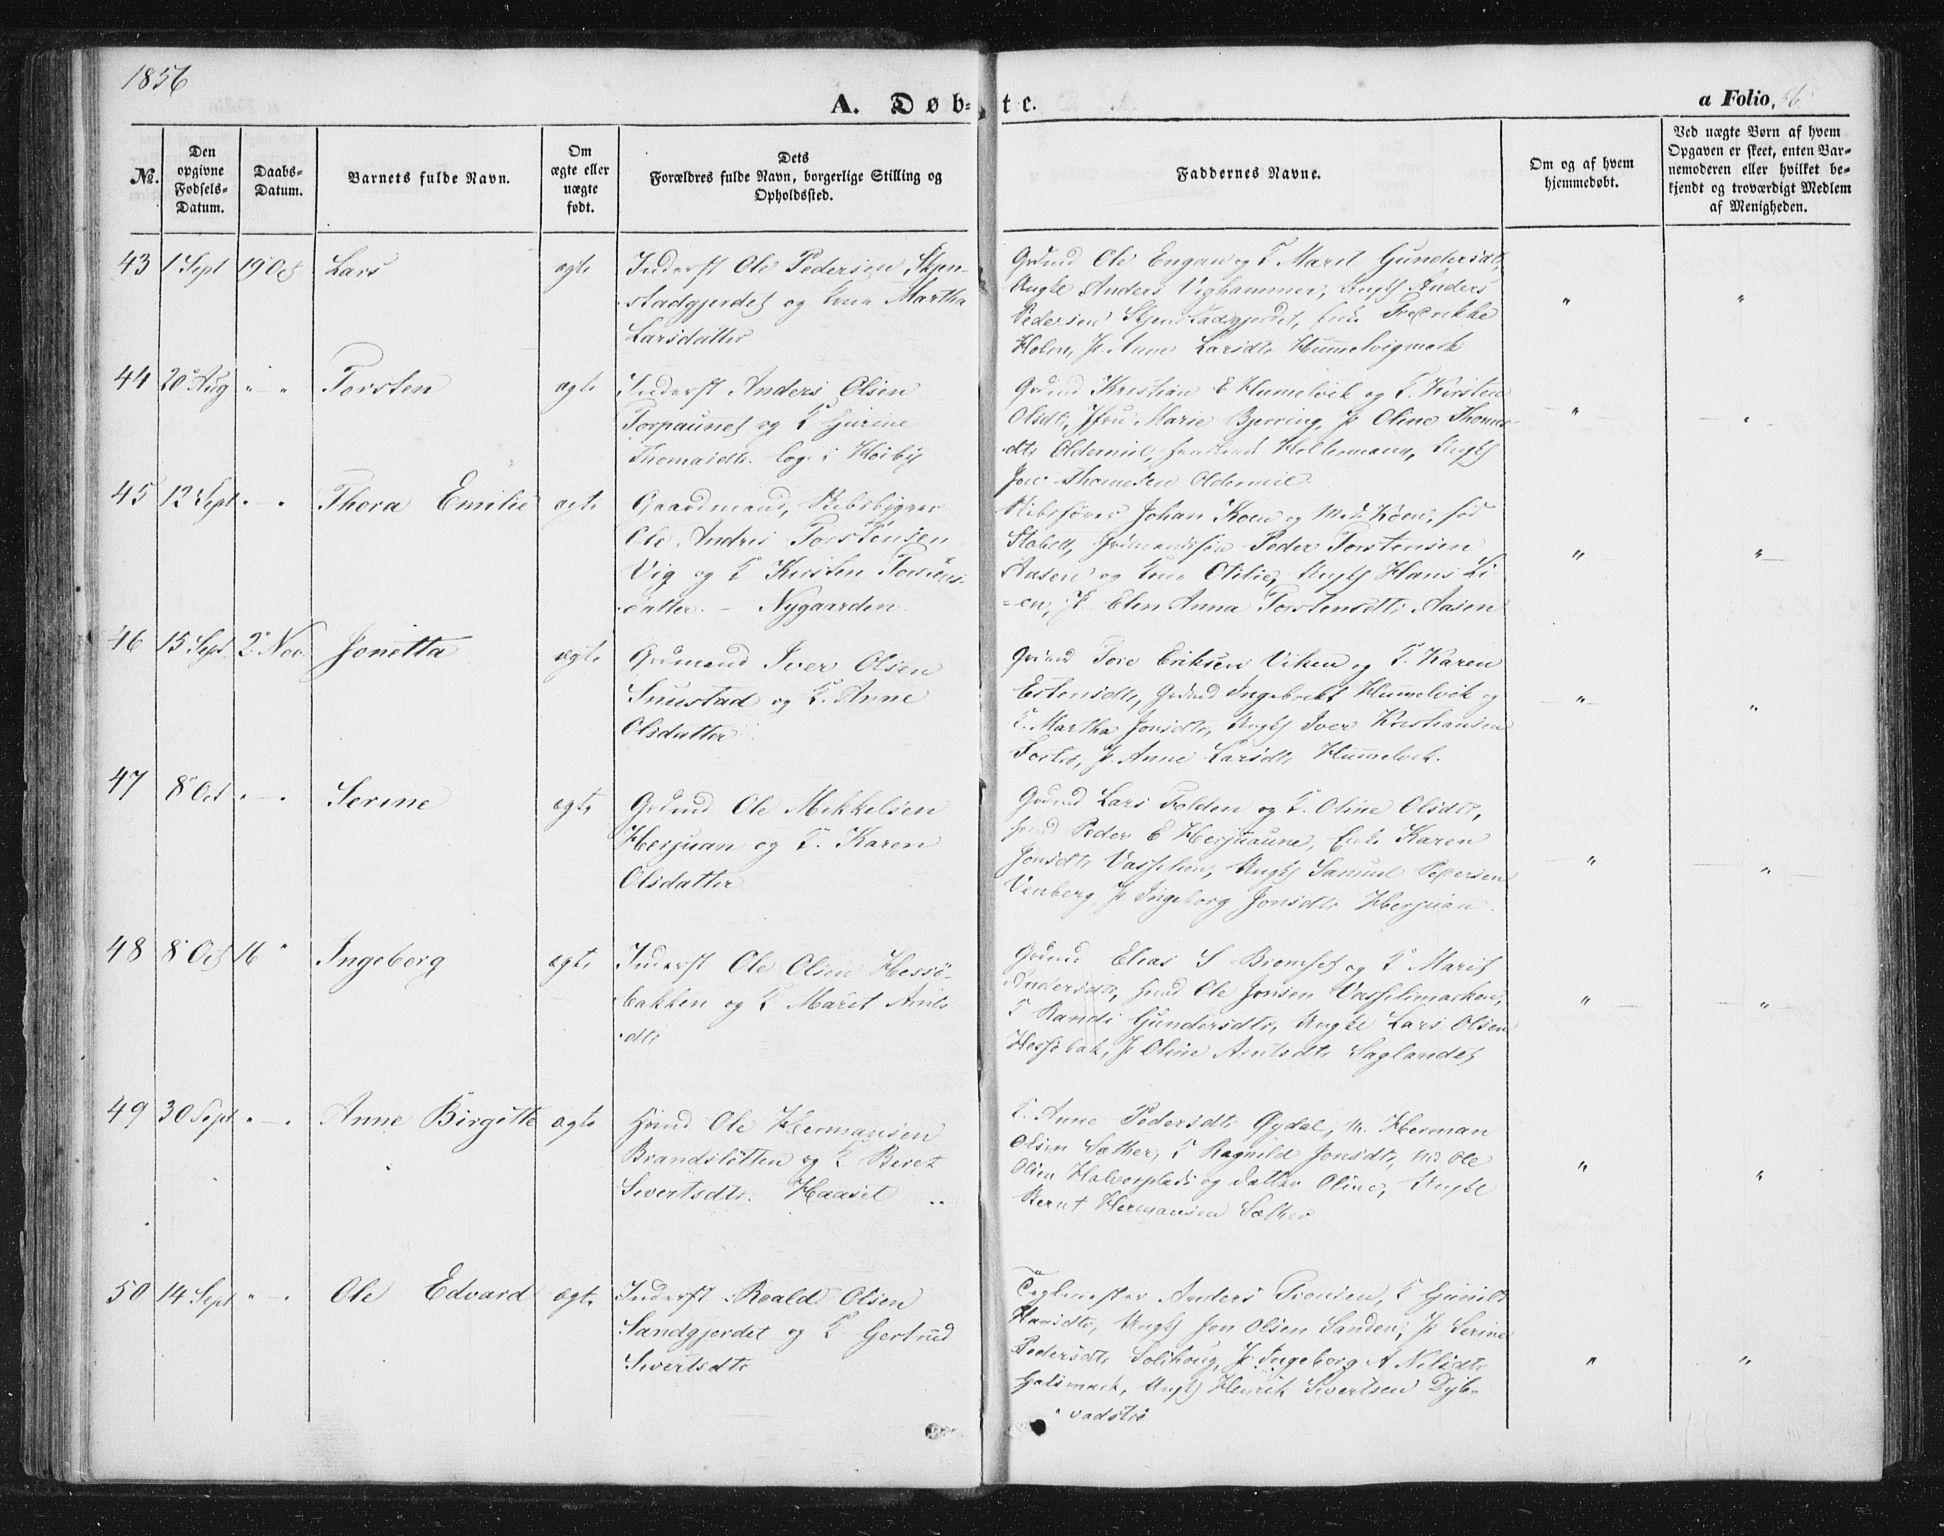 1856
A. Døbte.
a Folio. 56
No.
Den opgivne Fødsels-Datum.
Daabs-Datum.
Barnets fulde Navn.
Om ægte eller uægte født.
Dets Forældres fulde Navn, borgerlige Stilling og Opholdssted.
Faddernes Navne.
Om og af hvem hjemmedøbt.
Ved uægte Børn af hvem Opgaven er skeet, enten Barnemoderen eller hvilket bekjendt og troværdigt Medlem af Menigheden.
43 1 Sept 19 Oct Lars ægte Inderst Ole Pedersen Skjen-
stadgjerdet og Kone Martha
Larsdatter
Grdmd Ole Engan og K Maret Gundersdt,
Ungkl Anders Vighammer, Ungkl Anders
Pedersen Skjenstadgjerdet, Enke Fredrikke
Holm, P. Anne Larsdtr Hummelvigmark
" "
44 20 Aug " — " Torsten ægte Inderst Anders Olsen
Torpaunet og K Gurine
Thomasdtr. log. i Høiby
Grdmd Kristian E Humelvik og K. Kirsten
Olsdtr, Jfru Marie Bjerring, P Oline Thomas-
dtr Oldermel, Holtermann, Ungkl
Jon Thomesen Oldermel
" "
45 12 Sept " — " Thora Emilie ægte Gaardmand, Skibsbygger
Ole Andreas Torstensen
Vig og K Kirsten Torstens-
datter. — Nygaarden
Skibsfører Johan Koen og Md. Koen, fød
Stabell, Grdmandssøn Peder Torstensen
Aasen og Kone Otilie, Ungkl Hans Li-
=en, P. Elen Anna Torstensdtr Aasen
" "
46 15 Sept. 2 Nov. Jonetta ægte Grdmand Iver Olsen
Snustad og K. Anne
Olsdatter
Grdmd Tore Eriksen Viken og K. Karen
Estensdtr, Grdmd Ingebrekt Hummelvik og
K. Martha Jonsdtr, Ungkl Iver Kristiansen
P. Anne Larsdtr Hummelvik.
" "
47 8 Oct " — " Serine ægte Grdmd Ole Mikkelsen
Herjuan og K. Karen
Olsdatter
Grdmd Lars Folden og K. Oline Olsdtr,
Hmd Peder E Herjuaune, Enke Karen
Jonsdtr Vasslien, Ungkl Samuel Pedersen
Venberg, P Ingeborg Jonsdtr Herjuan.
" "
48 8 Oct 16 " Ingeborg ægte Inderst Ole Olsen Hessø-
bakken og K Maret Arnts
dtr
Grdmd Elias S Bromset og K Marit
Andersdtr, Hmd Ole Jonsen Vasslimarken,
K Randi Gundersdtr, Ungkl Lars Olsen
Hessøbak, P Oline Arntsdtr Saglandet,
" "
49 30 Sept " — " Anne Birgitte ægte Hmd Ole Hermansen
Brandsletten og K Beret
Sivertsdtr. Haaset
K. Anne Pedersdtr Gydal, M. Herman
Olsen Sæther, K Ragnild Jonsdtr, Md Ole
Olsen Halvorplads og datter Oline, Ungkl
Bernt Hermansen Sæther
" "
50 14 Sept " — " Ole Edvard ægte Inderst Roald Olsen
Sandgjerdet og K Gertrud
Sivertsdtr
Teglmester Anders Tronsen, K Gunild
Hansdtr, Ungkl Jon Olsen Sanden, P Serine
Pedersdtr Solihoug, P. Ingeborg A Nilsdtr
Halsmark, Ungkl Henrik Sivertsen Dyb-
vadstrø
" "